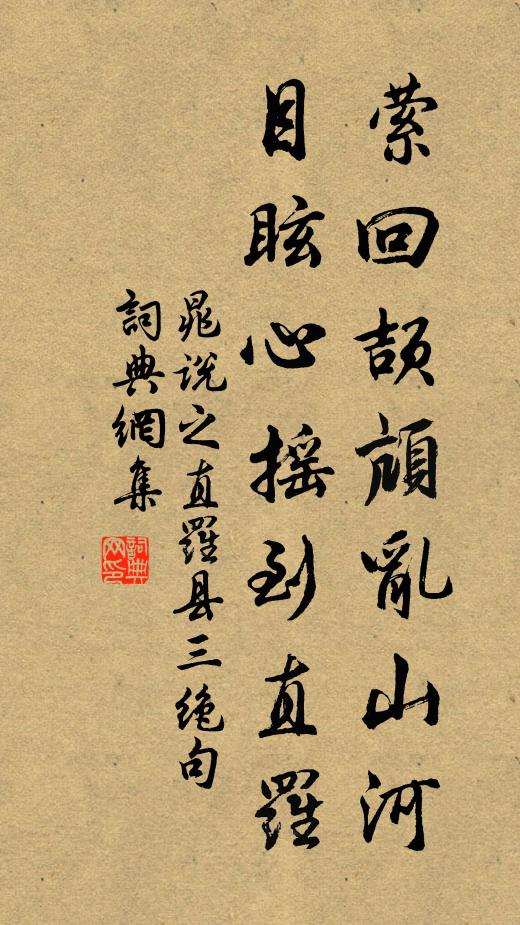 萦回颉頏亂山河
目眩心摇到直羅
晁說之直羅县三绝句
詞典網集
詞典
网印